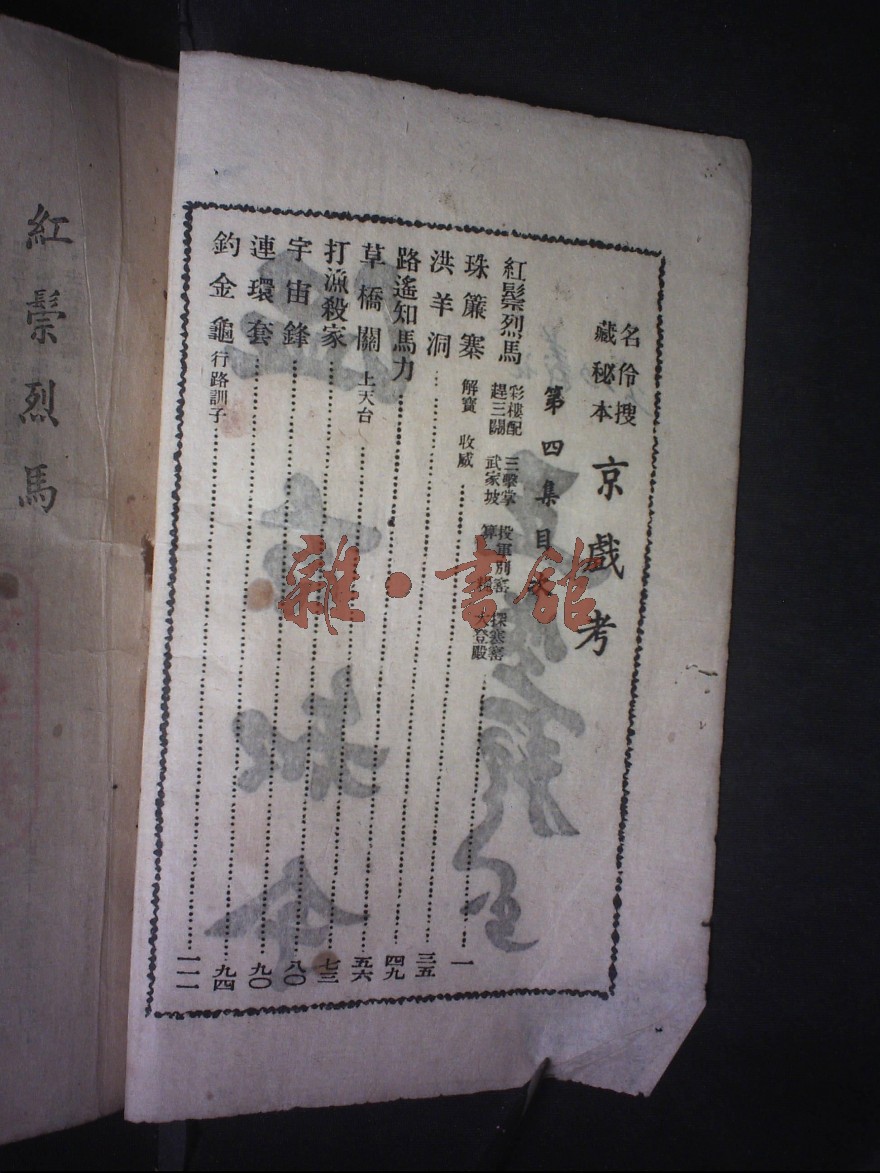 名伶搜
藏秘本
京戲考
第四集目次
紅鬃烈馬 彩樓配 三擊掌 投軍別窰 探寒窰
趕三關 武家坡 算 大登殿 一
珠簾寨 解寶 收威 三五
洪羊洞 四九
路遙知馬力 五六
草橋關 上天台 七三
打漁殺家 八〇
宇宙鋒 九〇
連環套 九四
釣金龜 行路訓子 一一一
紅鬃烈馬
雜·書館